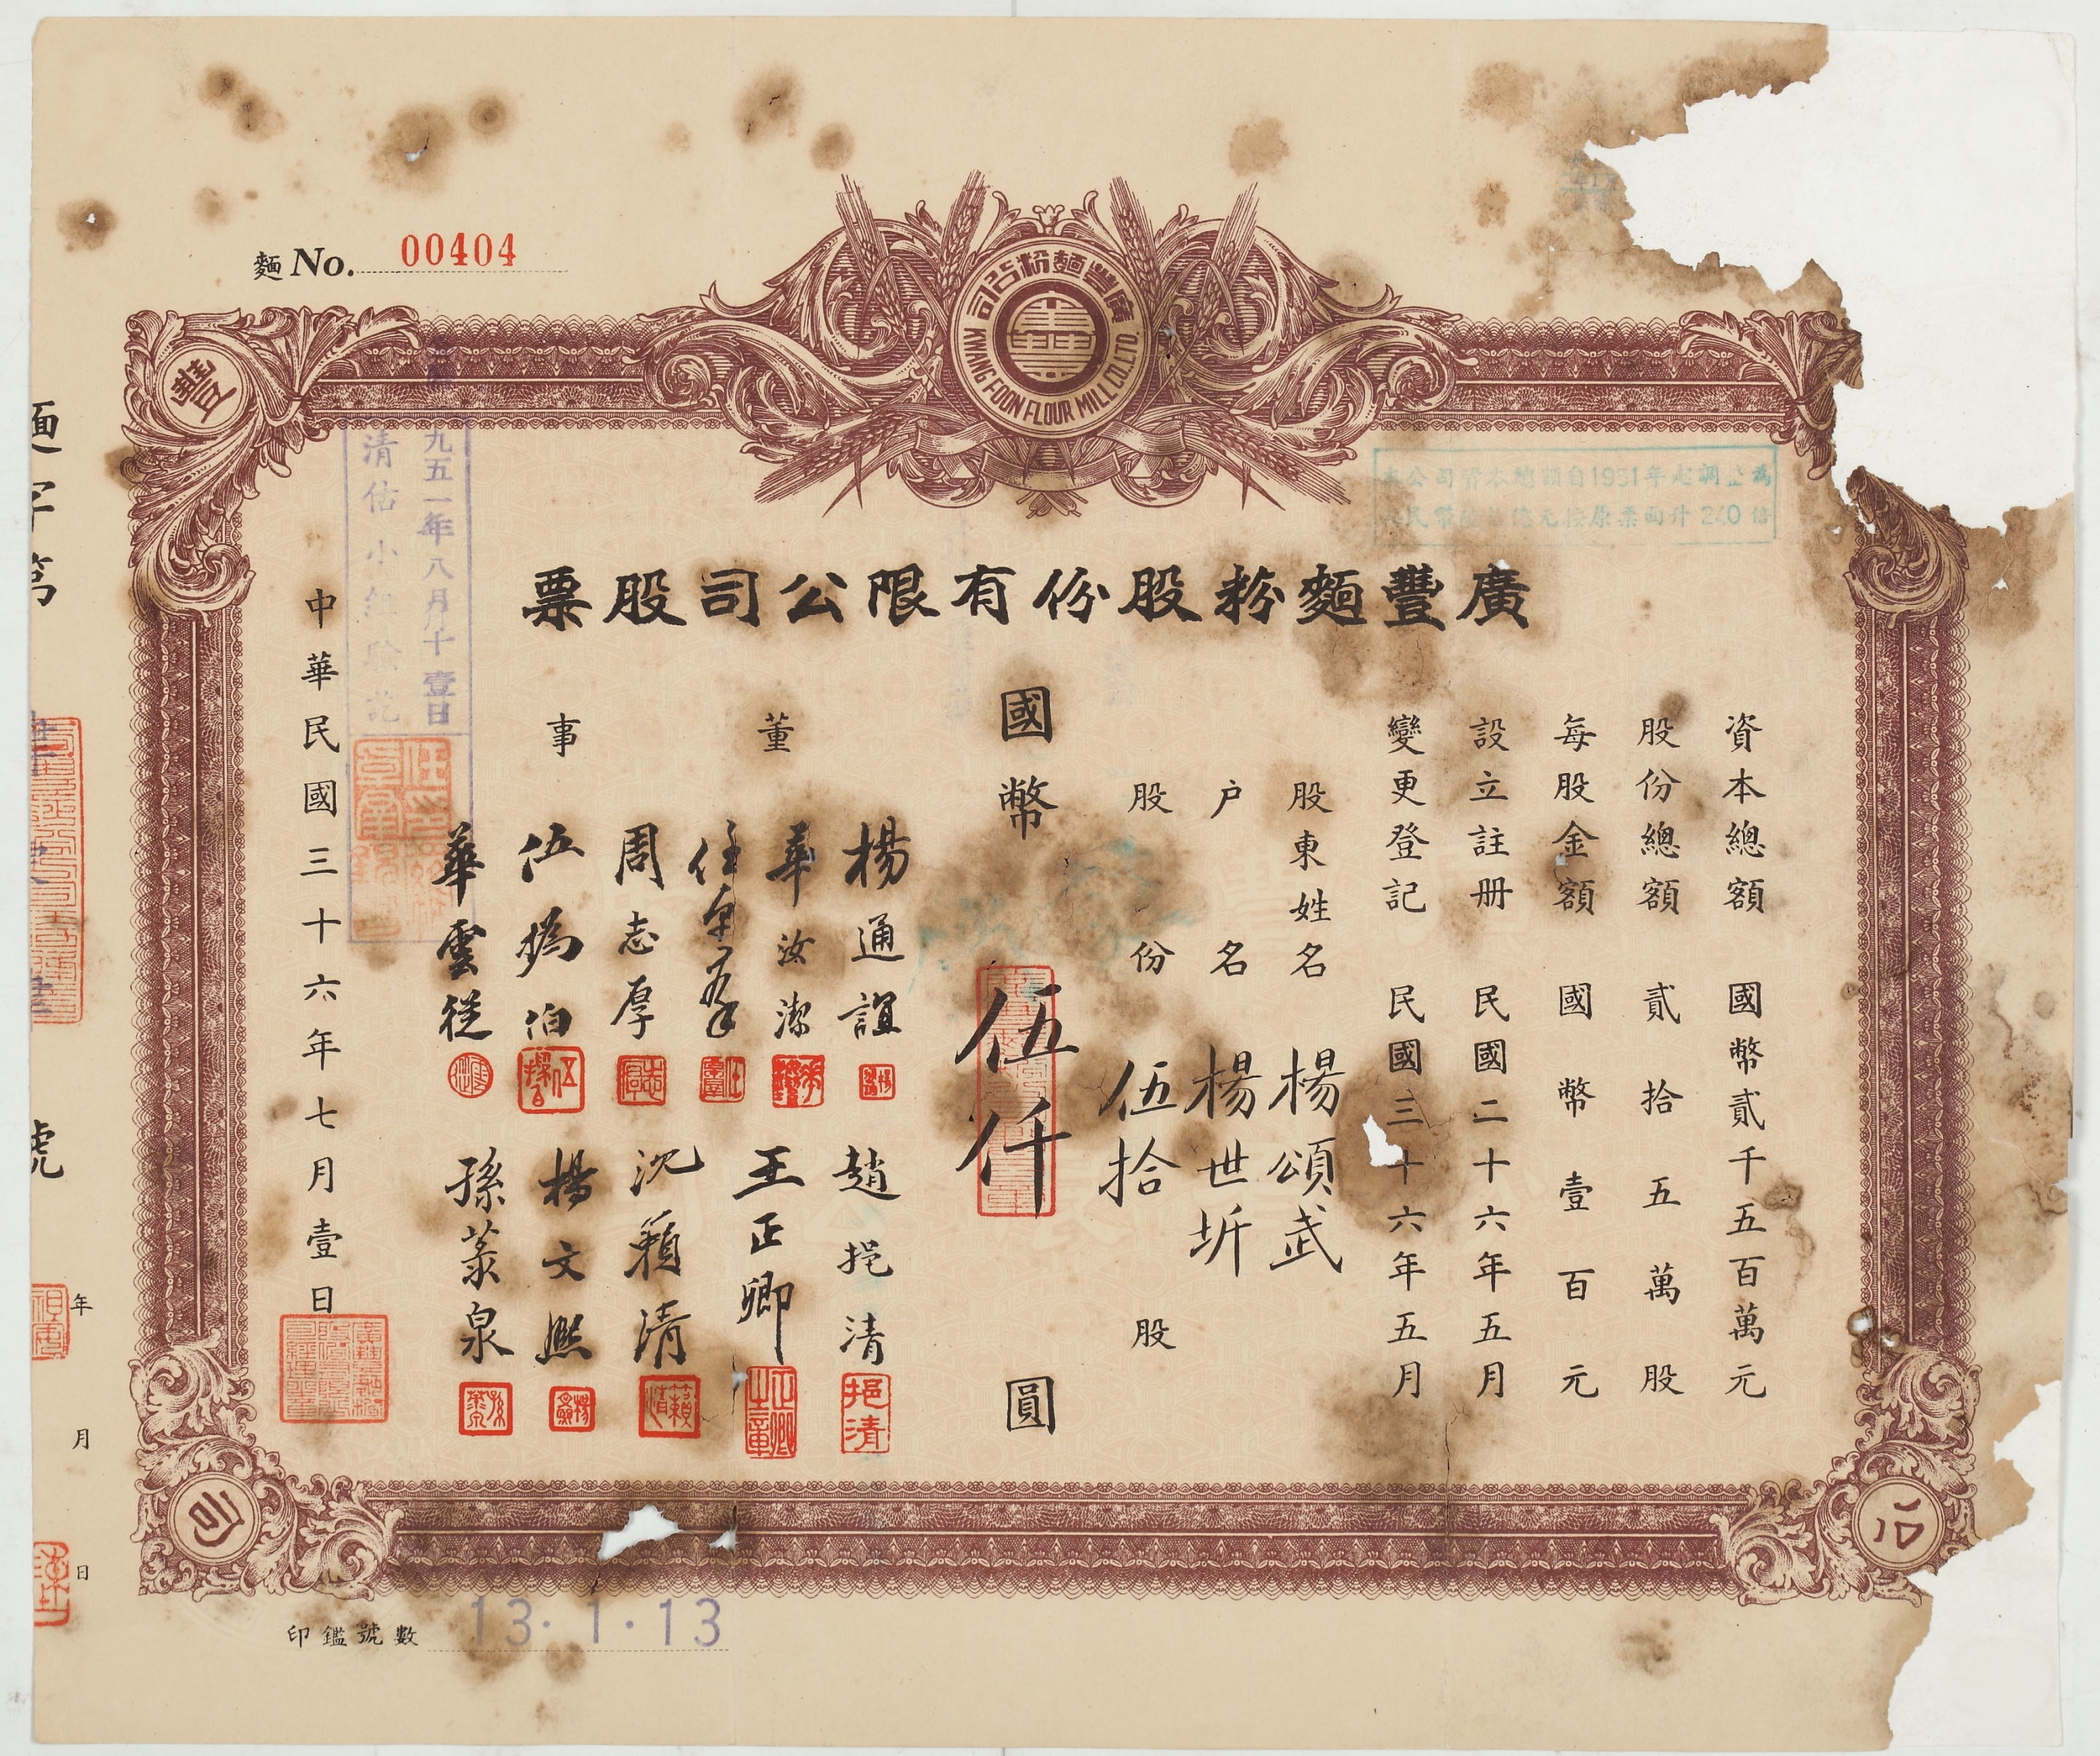 麵 No. 00404
廣豐麵粉公司
KWANG FOON FLOUR MILL CO., LTD.
豐
本公司資本總額自1951年起調整為
億元按原票面升240倍
廣豐麵粉股份有限公司股票
資本總額 國幣貳千五百萬元
股份總額 貳拾五萬股
每股金額 國幣壹百元
設立註册 民國二十六年五月
變更登記 民國三十六年五月
股東姓名 楊頌武
户名 楊世圻
股份 伍拾 股
國幣 伍仟 圓
董事
楊通誼
華汝潔
周志厚
伍
華雲從
趙挹清
挹清
王正卿
沈籟清
楊文熙
孫蒸泉
九五一年八月十壹日
清估小組驗訖
中華民國三十六年七月壹日
麵字第 號
年 月 日
公
司
印鑑號數 13·1·13